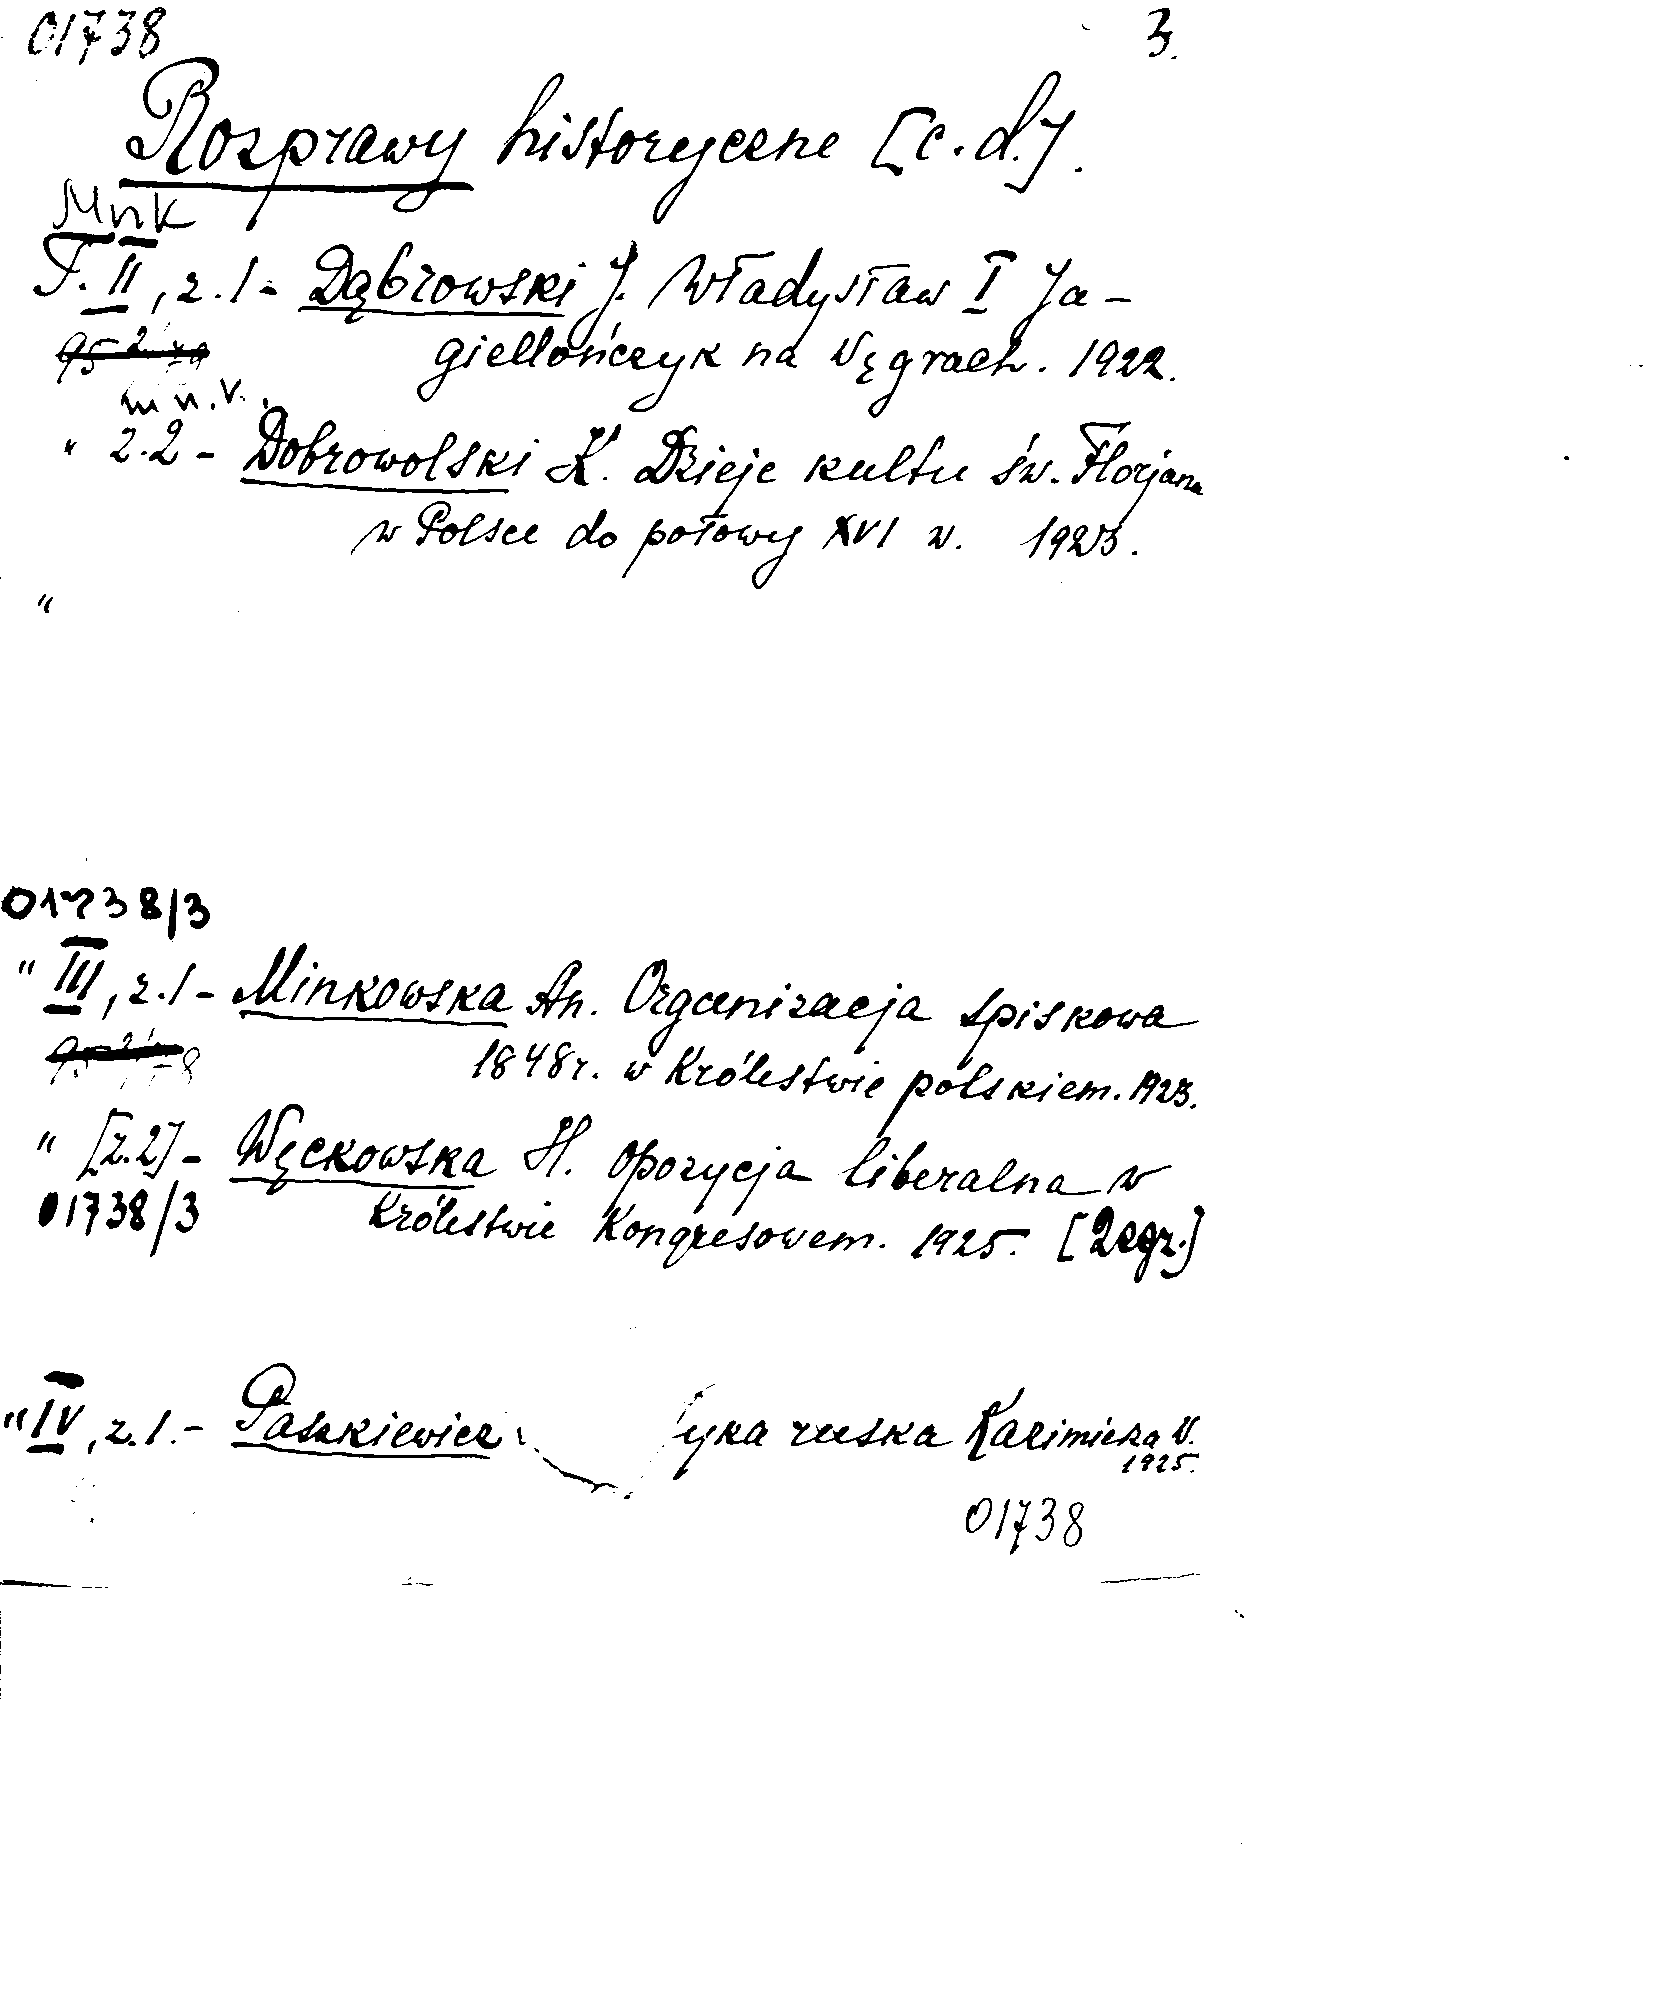 01738 3.
Rozprawy historyczne [c.d.].
Mnk
T. II, z.1 - Dąbrowski J. Władysław I Ja-
giellończyk na Węgrach. 1922.
m n.v.
" z.2 - Dobrowolski K. Dzieje kultu św. Florjana
w Polsce do połowy XVI w. 1923.
"
01738/3
" III, z.1 - Minkowska An. Organizacja spiskowa
1848r. w Królestwie polskiem. 1923.
" [z.2] - Więckowska H. Opozycja liberalna w
01738/3 Królestwie Kongresowem. 1925. [2egz.]
" IV, z.1. - Paszkiewicz yka ruska Kazimierza W.
1925.
01738